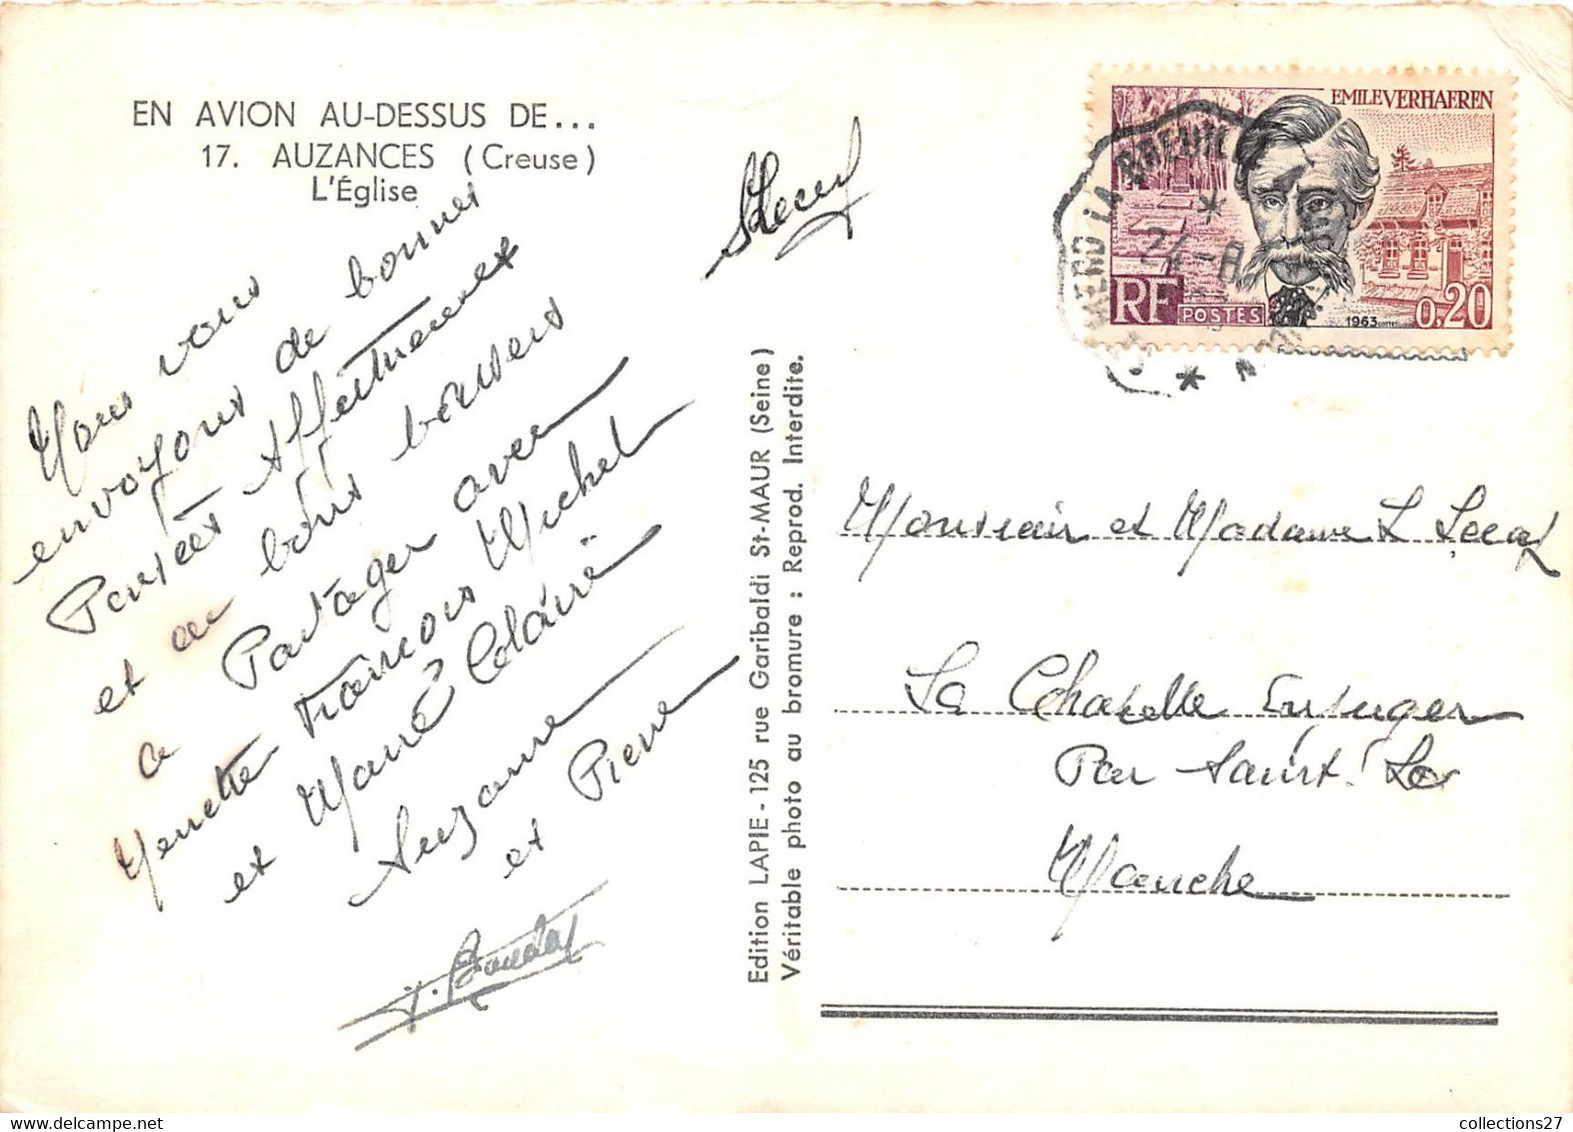 EN AVION AU-DESSUS DE...
17. AUZANCES (Creuse)
L'Église
Nous vous
envoyons de bonnes
Pensées Affectueuses
et de bons baisers
a Partager avec
Yenette Francois Michel
et Marie Claire
Suzanne
et Pierre
Edition LAPIE - 125 rue Garibaldi St-MAUR (Seine)
Véritable photo au bromure : Reprod. Interdite.
EMILE VERHAEREN
LA BREUILLE
24-8
RF POSTES
1963
0,20
Monsieur et Madame L
La Chapelle Enjuger
Par Saint Lo
Manche
collections27